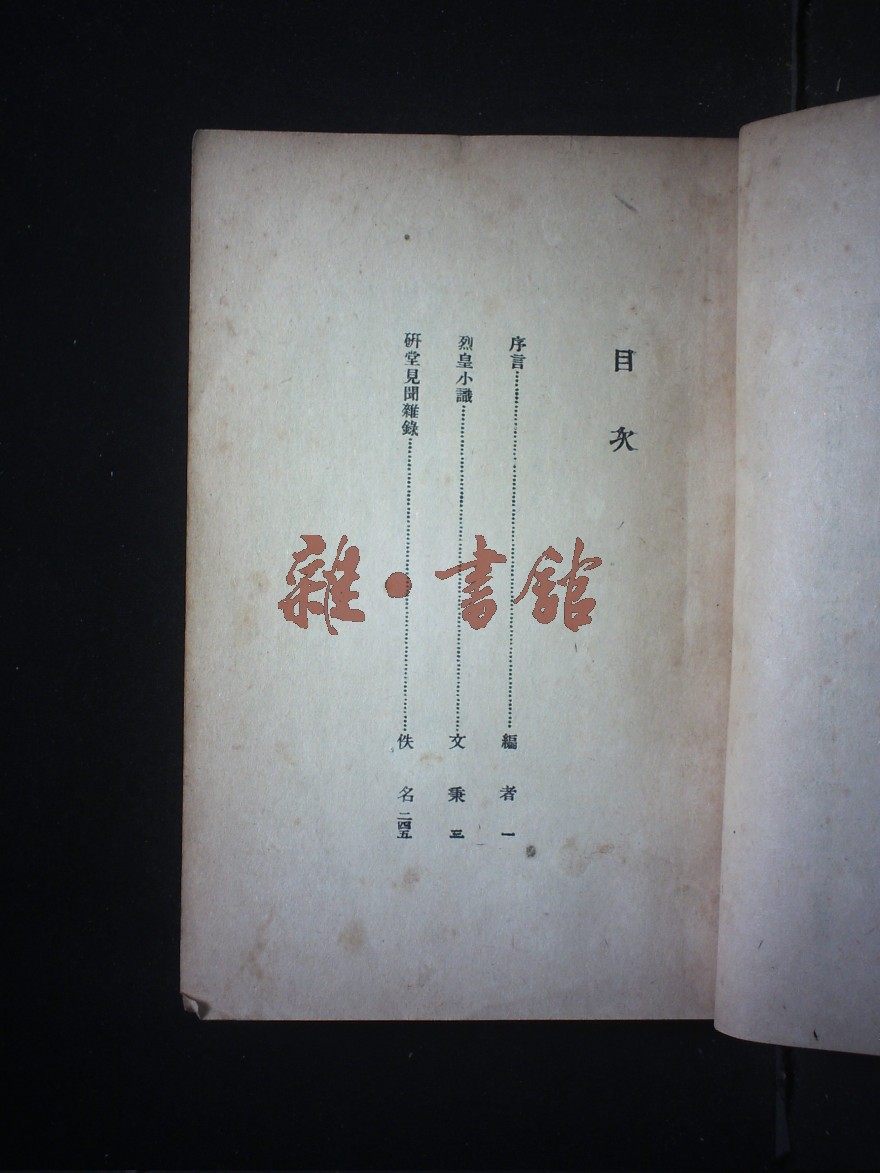 目次
序言……編者 一
烈皇小識……文秉 三
研堂見聞雜錄……佚名 二四五
雜·書館